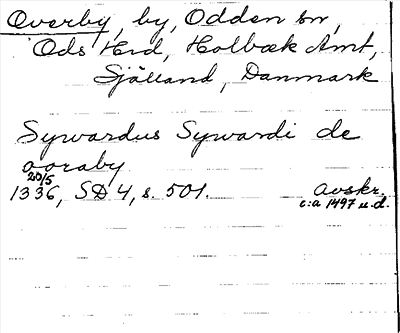 Overby, by, Odden sn,
Ods Hrd, Holbæk Amt,
Själland, Danmark
Sywardus Sywardi de
ooraby
20/5
1336, SD 4, s. 501. Avskr.
c:a 1497 u.d.